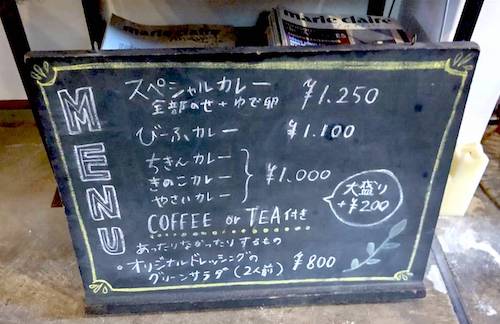 marie claire
marie claire
MENU
スペシャルカレー ¥1.250
全部のせ+ゆで卵
びーふカレー ¥1.100
ちきんカレー
きのこカレー ¥1.000
やさいカレー
大盛り
+¥200
COFFEE or TEA付き
あったりなかったりするもの
・オリジナルドレッシングの
グリーンサラダ(2人前) ¥800